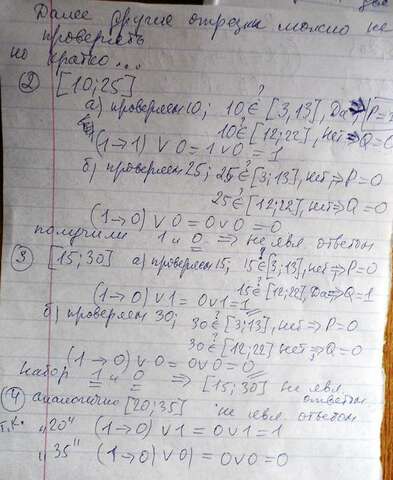 Далее другие отрезки можно не
проверять
но кратко...
② [10;25]
а) проверяем 10; 10 ∈? [3,13], Да ⇒ P=
10 ∈? [12;22], Нет ⇒ Q=0
(1→1) ∨ 0 = 1 ∨ 0 = 1
б) проверяем 25; 25 ∈? [3;13], нет, ⇒ P=0
25 ∈? [12;22], нет ⇒ Q=0
(1→0) ∨ 0 = 0 ∨ 0 = 0
получили 1 и 0 ⇒ не явл ответом
③ [15;30] а) проверяем 15; 15 ∈? [3;13], нет ⇒ P=0
15 ∈? [12;22], Да ⇒ Q=1
(1→0) ∨ 1 = 0 ∨ 1 = 1
б) проверяем 30; 30 ∈? [3;13], нет ⇒ P=0
30 ∈? [12;22] нет ⇒ Q=0
(1→0) ∨ 0 = 0 ∨ 0 = 0
Набор 1 и 0 ⇒ [15;30] не явл
ответом
④ аналогично [20;35] не явл. ответом
т.к. "20" (1→0) ∨ 1 = 0 ∨ 1 = 1
"35" (1→0) ∨ 0) = 0 ∨ 0 = 0